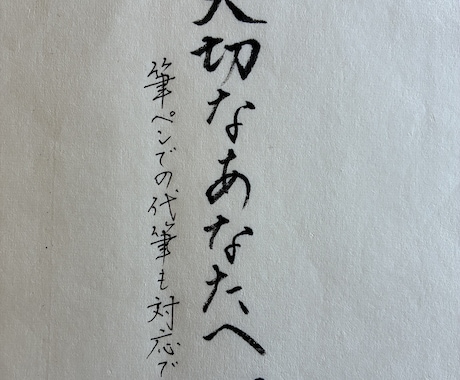 大切なあなたへ
筆ペンでの代筆も対応で